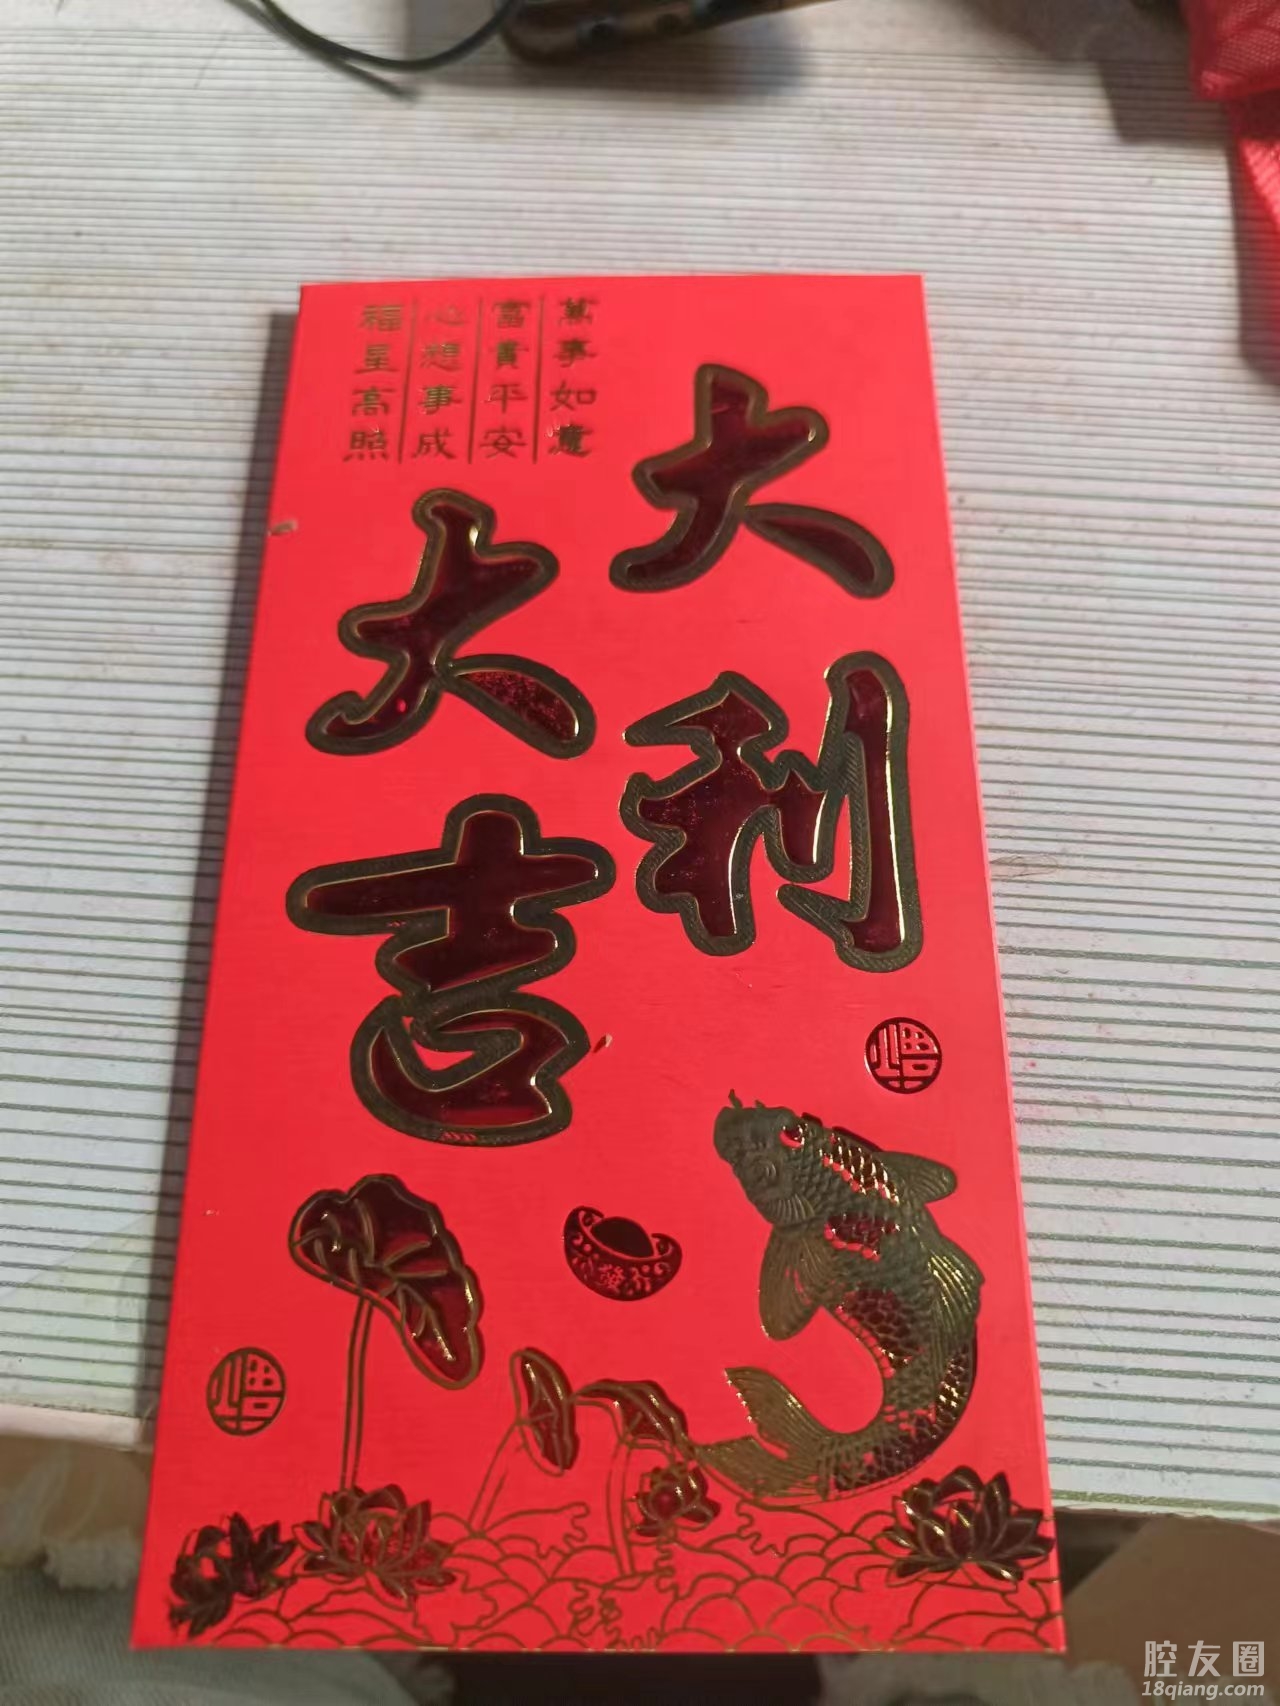 萬事如意
富貴平安
心想事成
福星高照
大利
大吉
福
發
福
腔友圈
18qiang.com